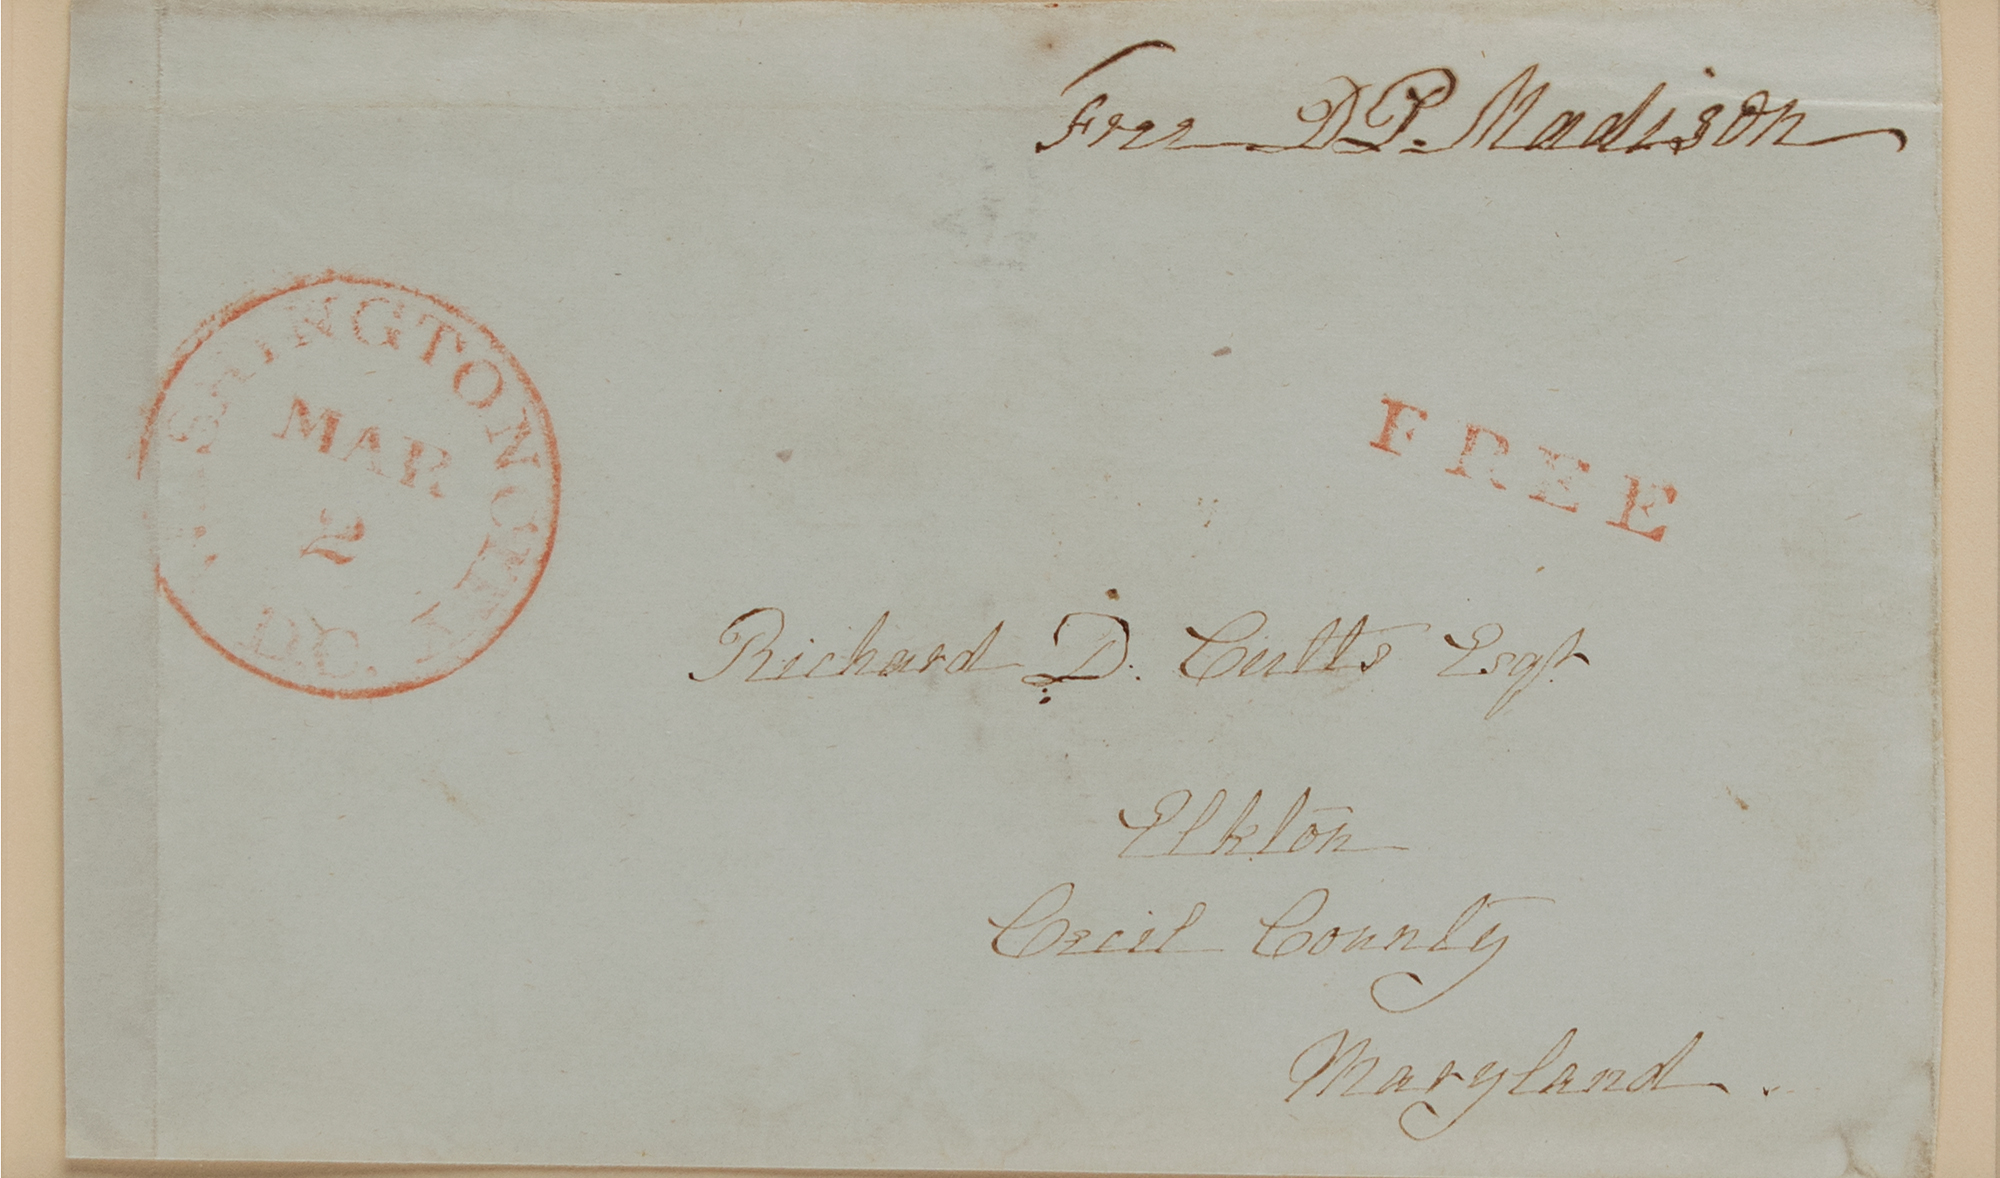 Free D P. Madison
WASHINGTON CITY
MAR
2
D.C.
FREE
Richard D. Cutts Esqr
Elkton
Cecil County
Maryland.